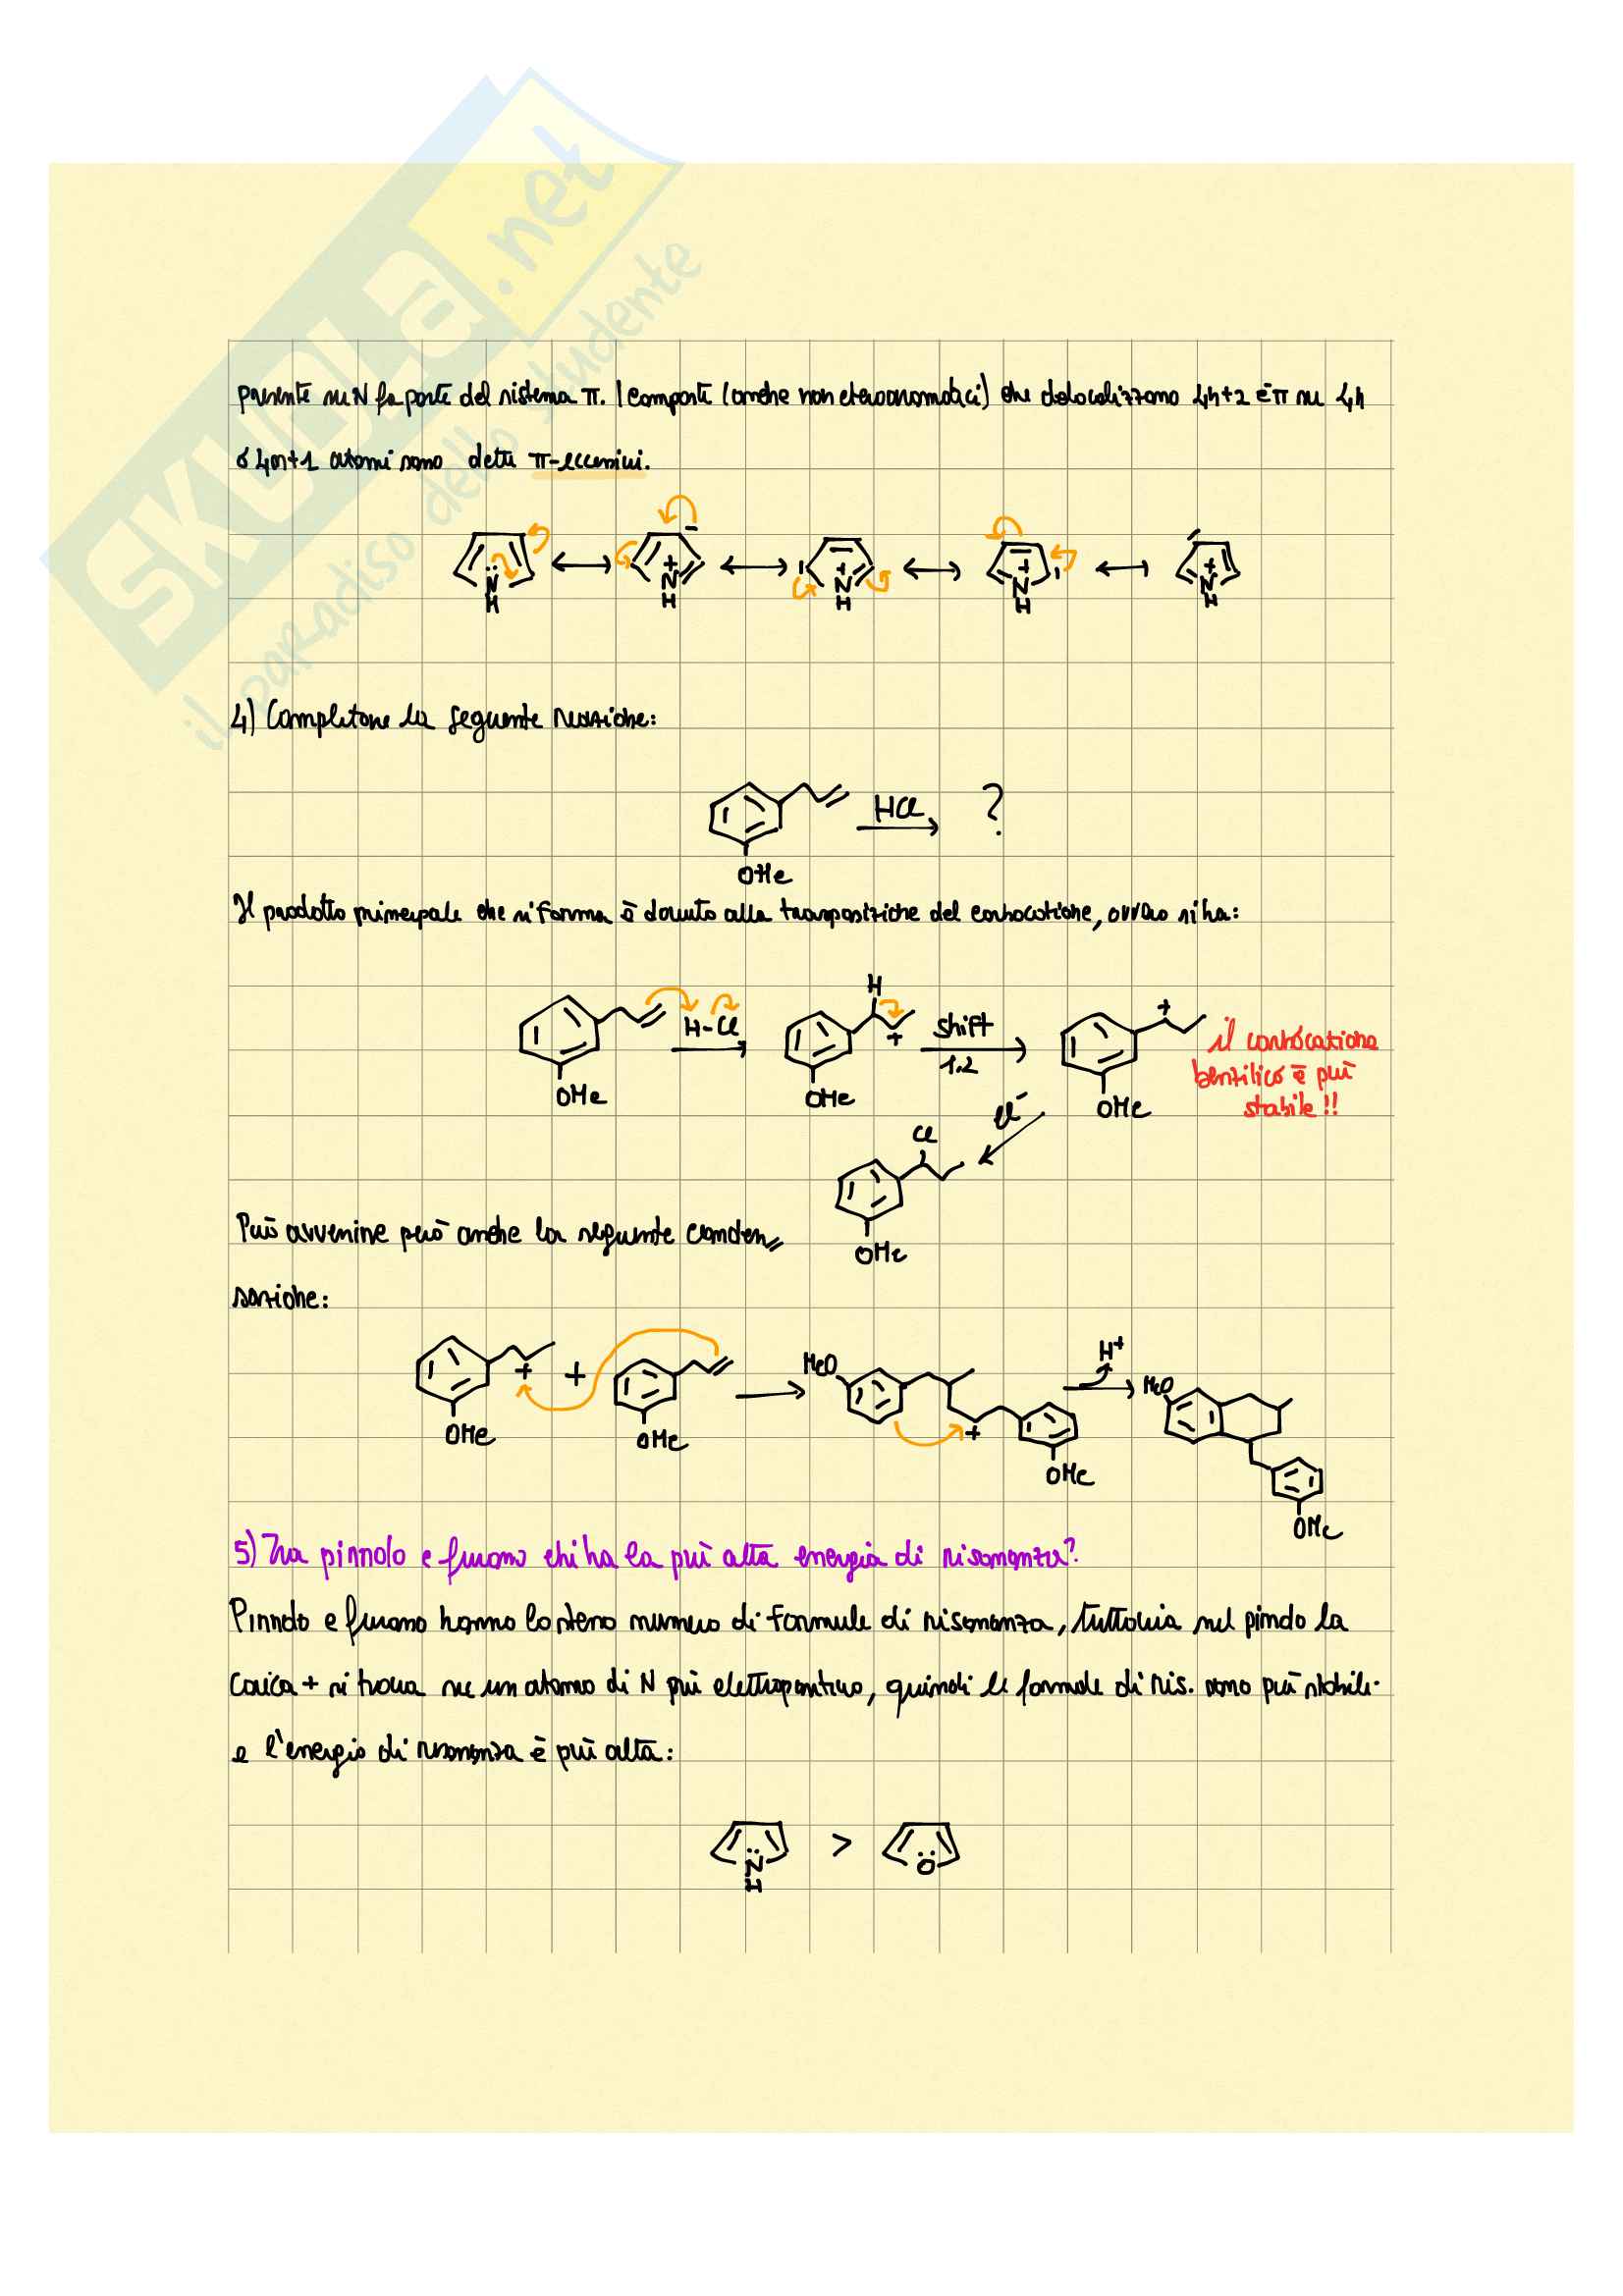 SKUOLA.net
il paradiso dello studente
presente su N fa parte del sistema π. I composti (anche non eteroaromatici) che delocalizzano 4n+2 e⁻π su 4n
o 4n+1 atomi sono detti π-eccessivi.
N H N H N H N H N H
4) Completare la seguente reazione:
HCl ?
OMe
Il prodotto principale che si forma è dovuto alla trasposizione del carbocatione, ovvero si ha:
H
H-Cl + shift 1,2 +
il carbocatione
benzilico è più
stabile!!
OMe OMe OMe
Cl⁻
Cl
Può avvenire però anche la seguente conden=
OMe
sazione:
+ + MeO + H⁺ MeO
OMe OMe OMe
OMe
5) Tra pirrolo e furano chi ha la più alta energia di risonanza?
Pirrolo e furano hanno lo stesso numero di formule di risonanza, tuttavia nel pirrolo la
carica + si trova su un atomo di N più elettropositivo, quindi le formule di ris. sono più stabili
e l'energia di risonanza è più alta:
N H > O